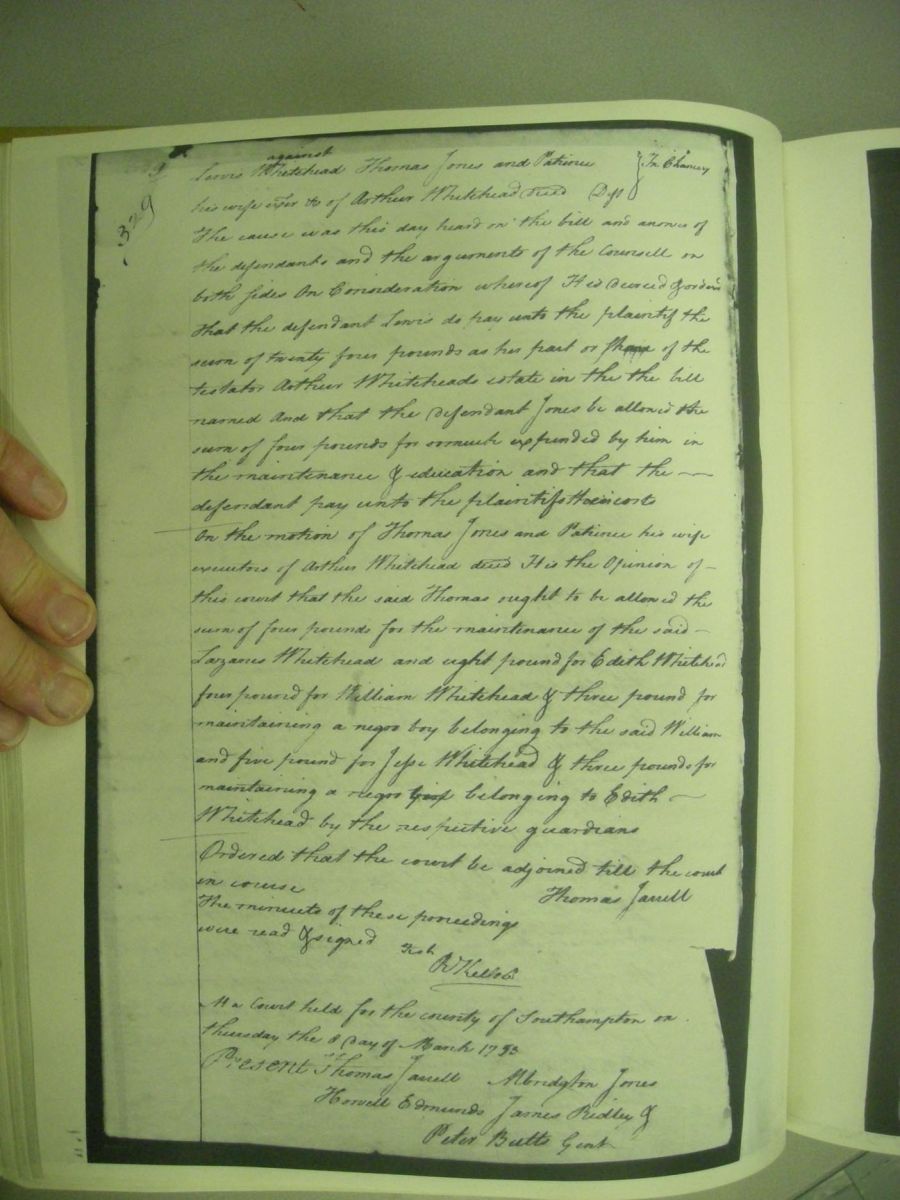 329
against
Lewis Whitehead Thomas Jones and Patience } In Chancery
his wife exer &c of Arthur Whitehead decd Deft
The cause was this day heard on the bill and answs of
the defendants and the arguments of the Councell on
both sides On Consideration whereof It is decreed & orderd
that the defendant Lewis do pay unto the plaintif the
sum of twenty four pounds as her part or share of the
testator Arthur Whiteheads estate in the the bill
named And that the defendant Jones be allowed the
sum of four pounds for so much expended by him in
the maintenance & education and that the
defendant pay unto the plaintifs their costs
On the motion of Thomas Jones and Patience his wife
executors of Arthur Whitehead decd It is the Opinion of
this court that the said Thomas ought to be allowed the
sum of four pounds for the maintenance of the said
Lazarus Whitehead and eight pound for Edith Whitehead
four pound for William Whitehead & three pound for
maintaining a negro boy belonging to the said William
and five pound for Jesse Whitehead & three pounds for
maintaining a negro belonging to Edith
Whitehead by the respective guardians
Ordered that the court be adjoined till the court
in course
Thomas Jarrell
The minuets of these proceedings
were read & signed
Test
R Kello Cl
At a Court held for the county of Southampton on
thursday the 8 Day of March 1753
Present Thomas Jarrell Albridgton Jones
Howell Edmunds James Ridley &
Peter Butts Gent